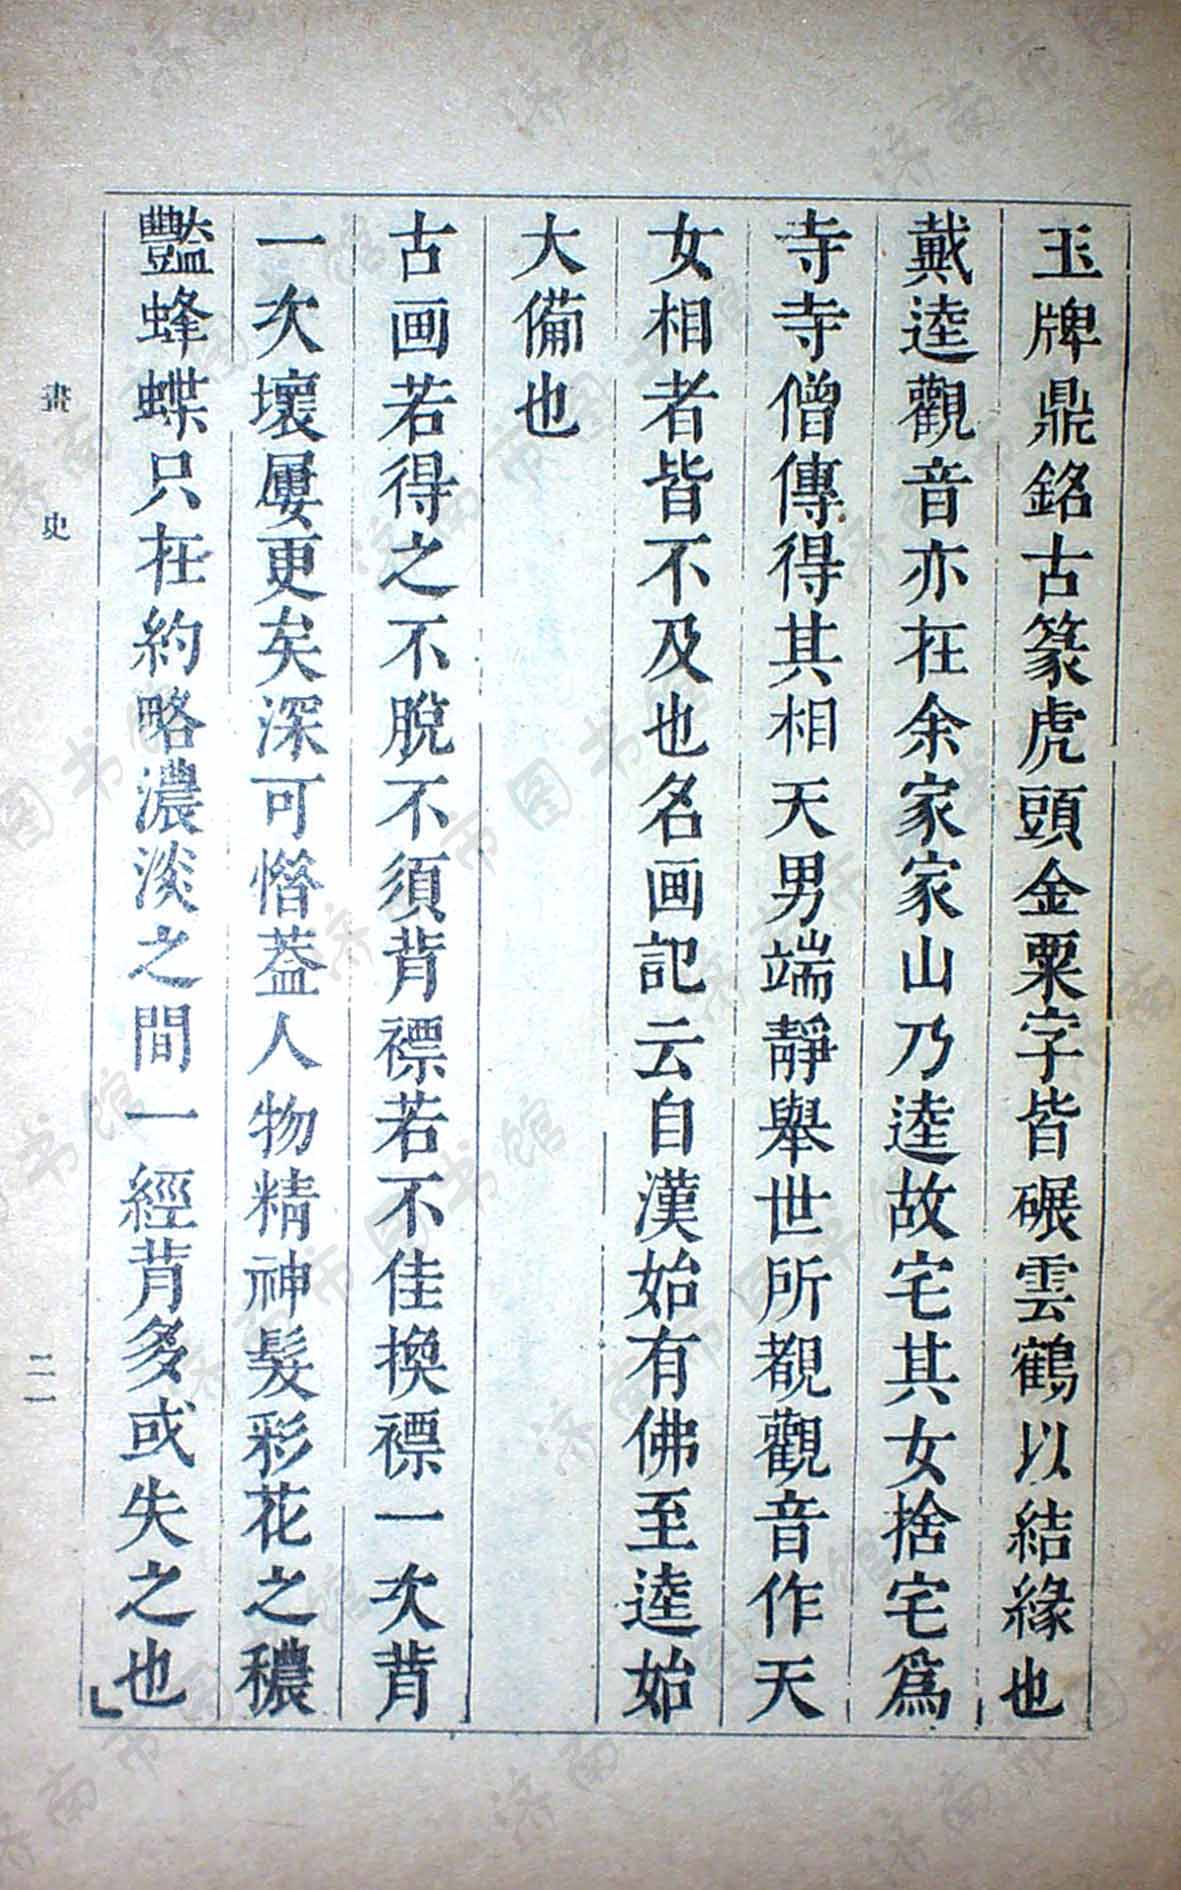 玉牌鼎銘古篆虎頭金粟字皆碾雲鶴以結緣也
戴逵觀音亦在余家家山乃逵故宅其女捨宅爲
寺寺僧傳得其相天男端靜舉世所覩觀音作天
女相者皆不及也名画記云自漢始有佛至逵始
大備也
古画若得之不脫不須背褾若不佳換褾一次背
一次壞屢更矣深可惜蓋人物精神髮彩花之穠
豔蜂蝶只在約略濃淡之間一經背多或失之也
畫史
二一
济南市图书馆